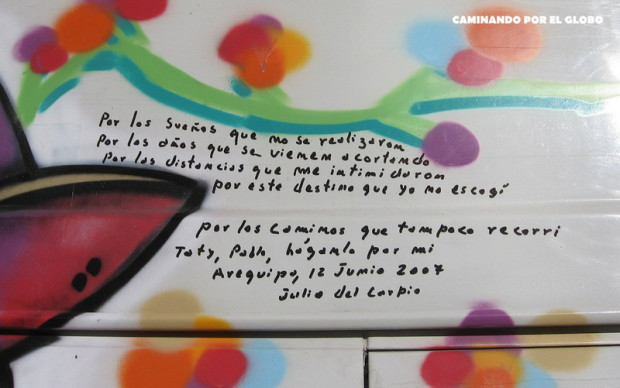 CAMINANDO POR EL GLOBO
Por los sueños que no se realizaron
Por los años que se vienen acortando
Por las distancias que me intimidaron
por este destino que yo no escogí
por los caminos que tampoco recorri
Taty, Pablo, háganlo por mi
Arequipa, 12 Junio 2007
Julio del Carpio